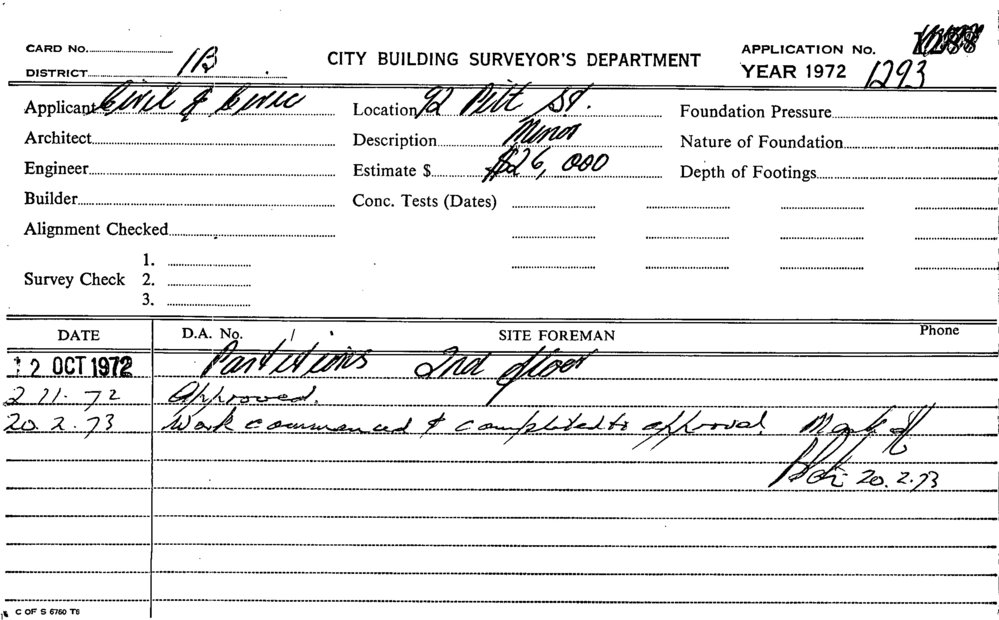 CARD No.
DISTRICT 1B
CITY BUILDING SURVEYOR'S DEPARTMENT
APPLICATION No.
YEAR 1972 1293
Applicant Civil & Civic
Location 92 Pitt St.
Foundation Pressure
Architect
Description Minor
Nature of Foundation
Engineer
Estimate $ $26,000
Depth of Footings
Builder
Conc. Tests (Dates)
Alignment Checked
1.
Survey Check 2.
3.
DATE D.A. No. SITE FOREMAN Phone
12 OCT 1972 Partitions 2nd floor
2 11. 72 Approved.
20. 2. 73 Work commenced & completed to approval. Mark off
20. 2. 73
C OF S 6760 T6